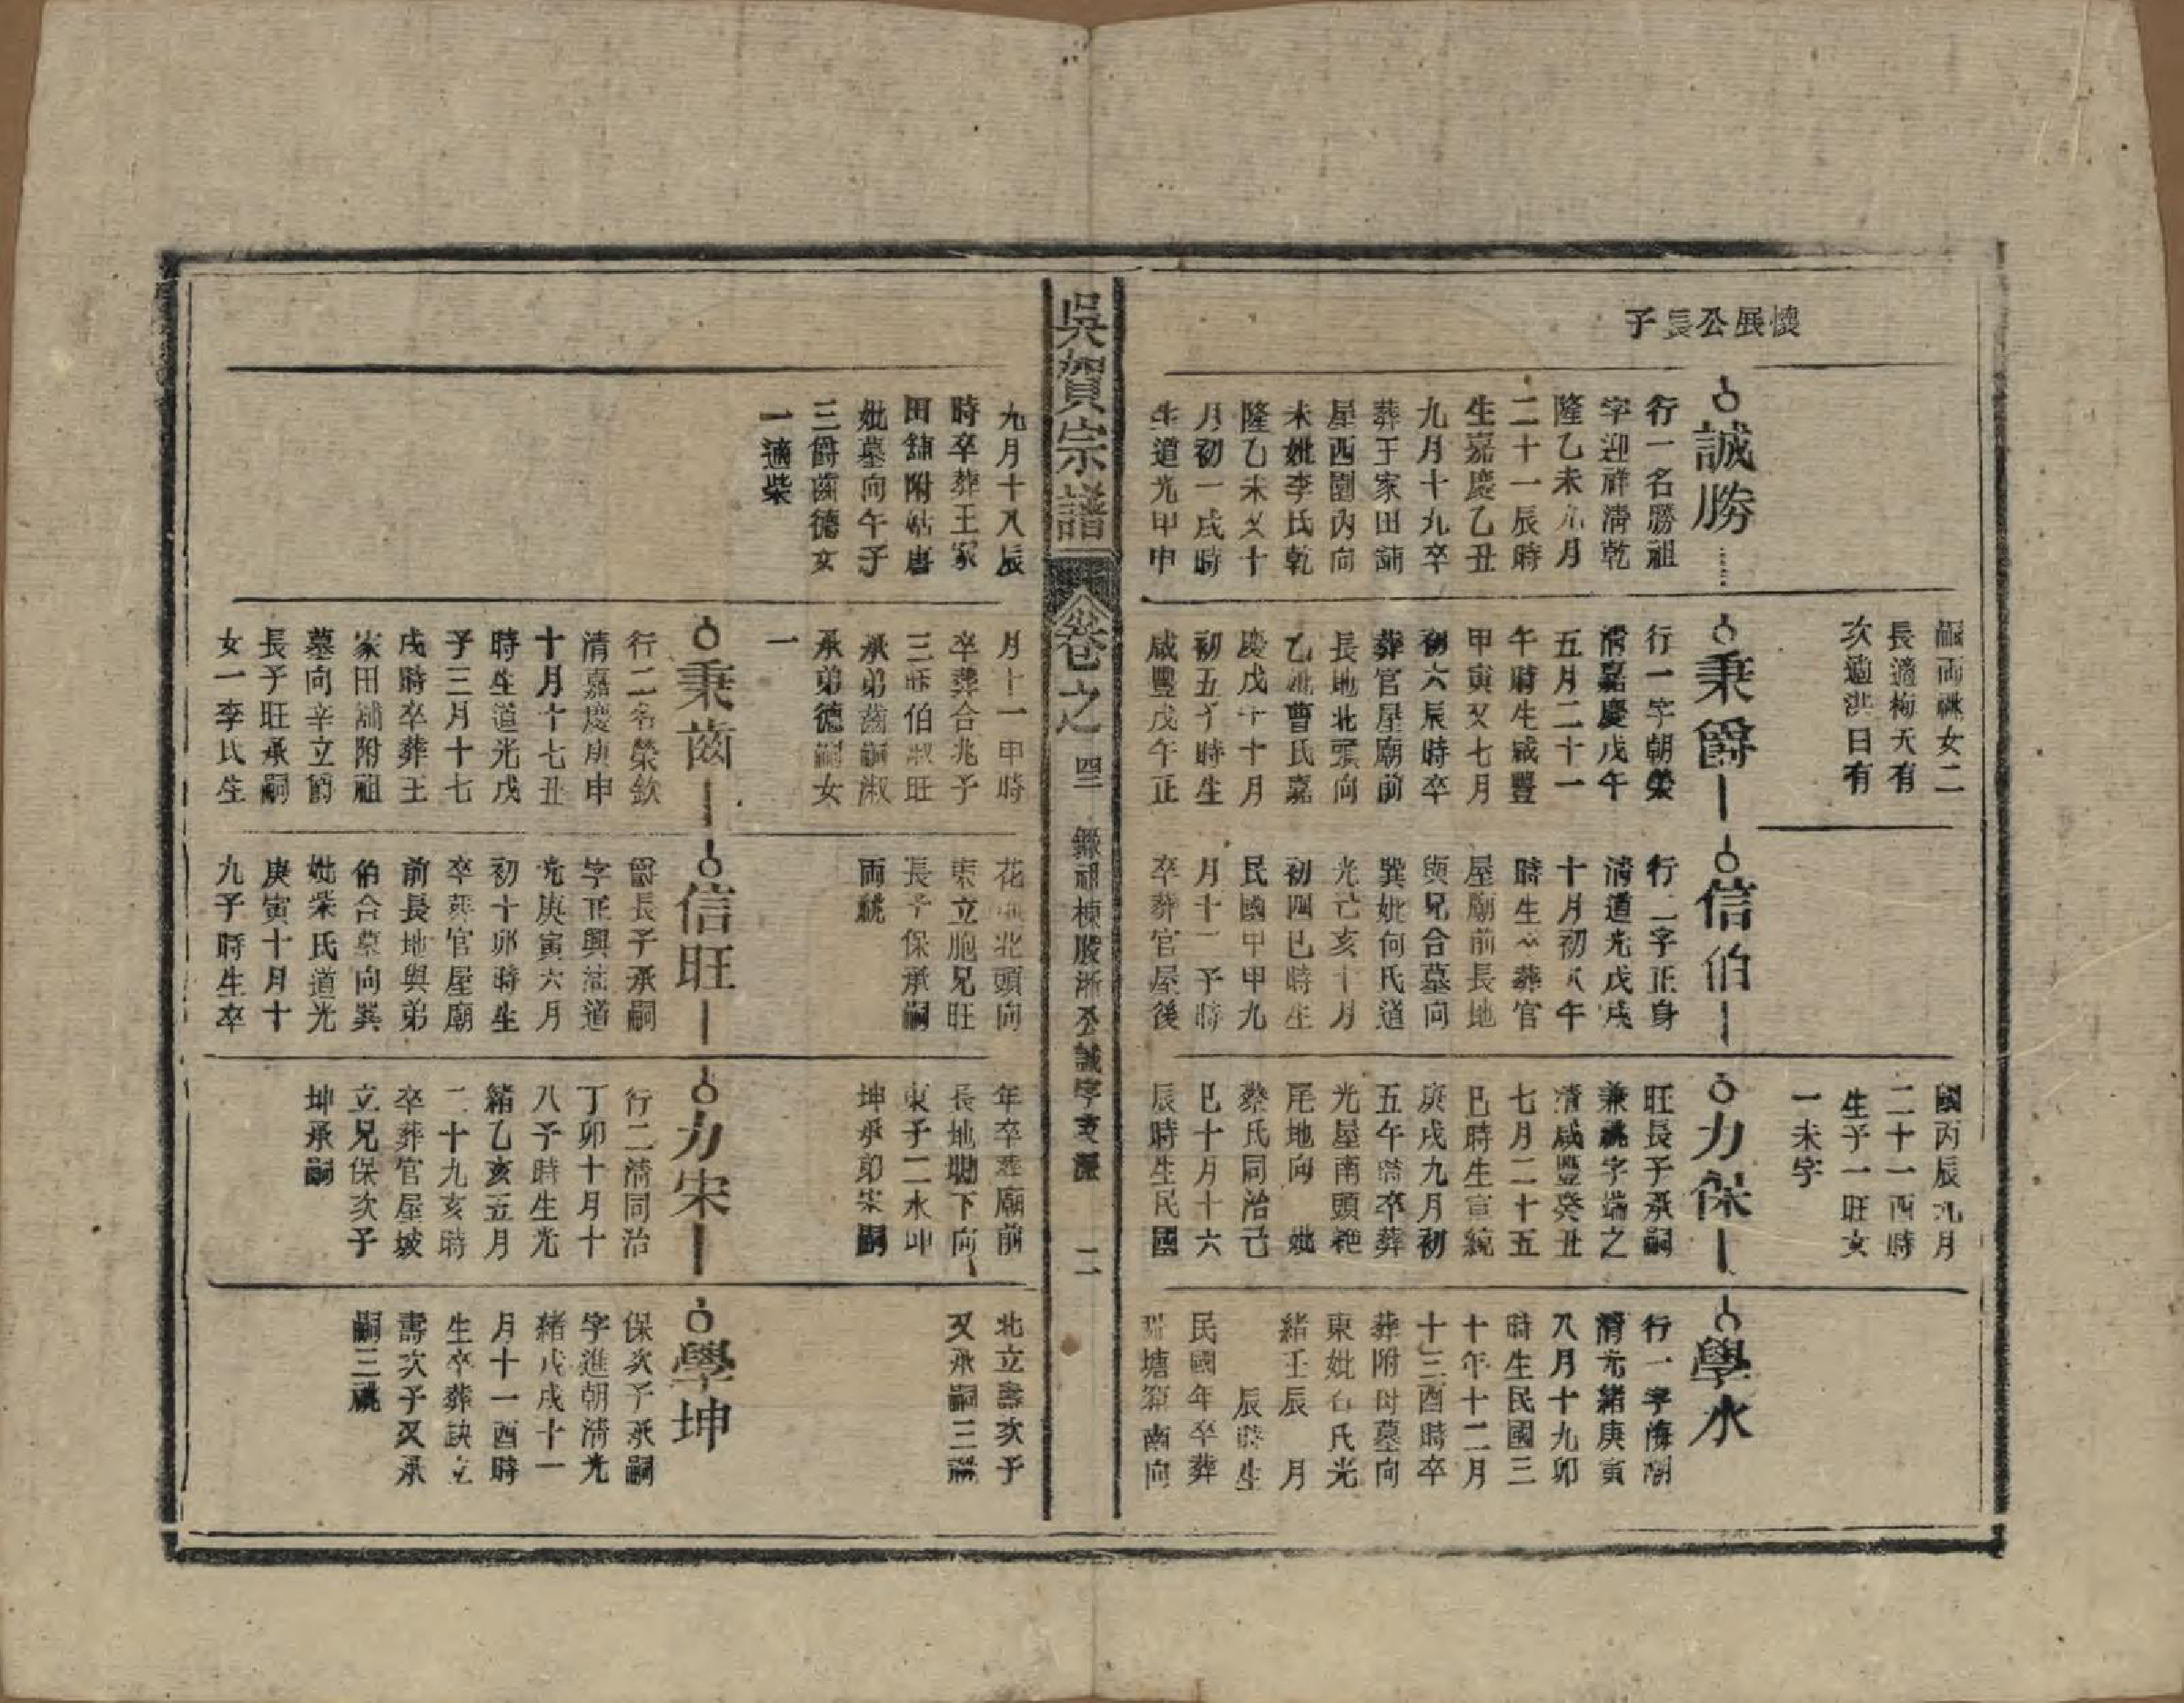 懷展公長子
誠勝
行一名勝祖
字迎祥清乾
隆乙未九月
二十一辰時
生嘉慶乙丑
九月十九卒
葬王家田舖
屋西園內向
未妣李氏乾
隆乙未又十
月初一戌時
生道光甲申
嗣兩祧女二
長適梅天有
次適洪日有
秉爵
行一字朝榮
清嘉慶戊午
五月二十一
午時生咸豐
甲寅又七月
初六辰時卒
葬官屋廟前
長地北頭向
乙妣曹氏嘉
慶戊午十月
初五子時生
咸豐戊午正
信伯
行二字正身
清道光戊戌
十月初八午
時生卒葬官
屋廟前長地
與兄合墓向
巽妣何氏道
光己亥十月
初四巳時生
民國甲甲九
月十一子時
卒葬官屋後
國丙辰九月
二十一酉時
生子一旺女
一未字
力保
旺長子承嗣
兼祧字端之
清咸豐癸丑
七月二十五
巳時生宣統
庚戌九月初
五午時卒葬
光屋南頭
尾地向 妣
蔡氏同治己
巳十月十六
辰時生民國
學水
行一字海潮
清光緒庚寅
八月十九卯
時生民國三
十年十二月
十三酉時卒
葬附母墓向
東妣石氏光
緒壬辰 月
辰時生
民國年卒葬
塘 南向
吳賀宗譜
卷之四
錄祖棟股淅公誠字支派
二
九月十八辰
時卒葬王家
田舖附姑唐
妣墓向午子
三爵齒德女
一適柴
月十一申時
卒葬合兆子
三旺伯淑旺
承弟齒嗣淑
承弟德嗣女
一
秉齒
行二名榮欽
清嘉慶庚申
十月十七丑
時生道光戊
子三月十七
戌時卒葬王
家田舖附祖
墓向辛立爵
長子旺承嗣
女一李氏生
花 北頭向
東立胞兄旺
長子保承嗣
兩祧
信旺
爵長子承嗣
字正興清道
光庚寅六月
初十卯時生
卒葬官屋廟
前長地與弟
伯合墓向巽
妣柴氏道光
庚寅十月十
九子時生卒
年卒葬廟前
長地 下向
東子二水坤
坤承弟宋嗣
力宋
行二清同治
丁卯十月十
八子時生光
緒乙亥五月
二十九亥時
卒葬官屋坡
立兄保次子
坤承嗣
北立壽次子
又承嗣三祧
學坤
保次子承嗣
字進朝清光
緒戊戌十一
月十一酉時
生卒葬缺立
壽次子又承
嗣三祧